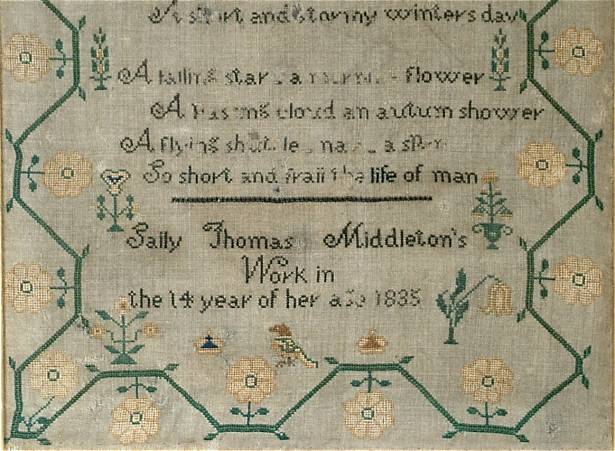 A short and stormy winters day
A falling star a morning flower
A passing cloud an autum shower
A flying shuttle nay a span
So short and frail the life of man
Sally Thomas Middleton's
Work in
the 14 year of her age 1835